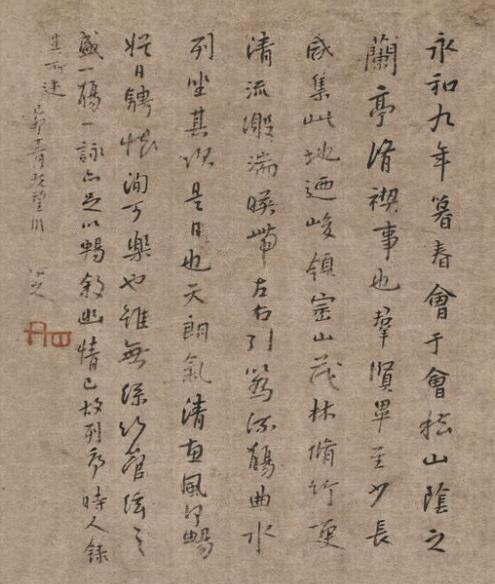 永和九年暮春會于會稽山陰之
蘭亭脩禊事也羣賢畢至少長
咸集此地迺峻領崇山茂林脩竹更
清流激湍暎帶左右引為流觴曲水
列坐其次是日也天朗氣清惠風和暢
娛目騁懷洵可樂也雖無絲竹管弦之
盛一觴一詠亦足以暢敘幽情已故列序時人錄
其所述
既望